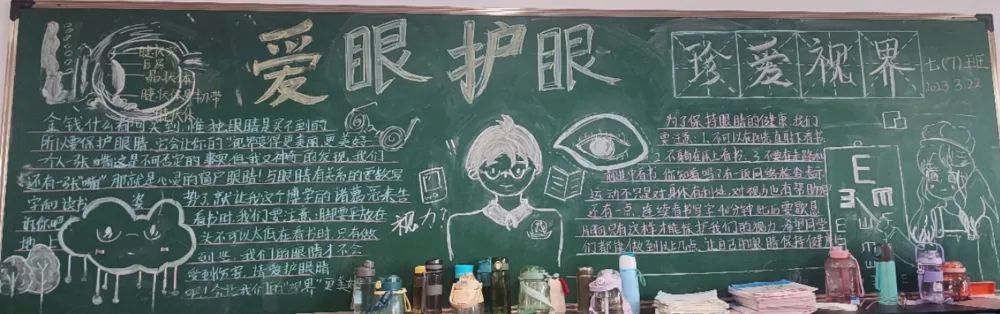 爱眼护眼
珍爱视界
七(7)班
2023.3.22
睫状
晶状体
金钱什么都可买到,惟独眼睛是买不到的
所以要保护眼睛,它会让你的"视界"变得更美丽,更美好
一个人一张嘴这是不可否定的事实但我又神奇的发现,我们
还有一张"嘴"那就是心灵的窗户眼睛!与眼睛有关系的要数写
字和读书
势了,就让我这个博学的诸葛亮来告
诉你吧
看书时,我们要注意:脚要平放在
地上
头不可以太低在看书时,只有做
到这 我们的眼睛才不会
受到伤害,请爱护眼睛
吧!会让我们的"视界"更美好
视力?
为了保持眼睛的健康,我们
要注意:1.不可以在阳光直射下看书
2.不躺在床上看书。3.不要在走路时
看书 你知道吗?有一项网络检查表示
运动不只是对身体有利处,对视力也有帮助呢
还有一点,连续看书写字40分钟此后要歇息
片刻只有这样才能保护我们的视力。希望同学
们都能做到以上几点,让自己的眼睛保持健康
E